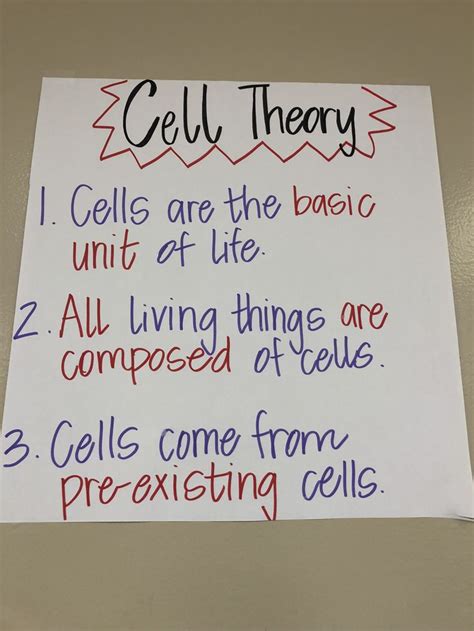 Cell Theory
1. Cells are the basic
unit of life.
2. All living things are
composed of cells.
3. Cells come from
pre-existing cells.